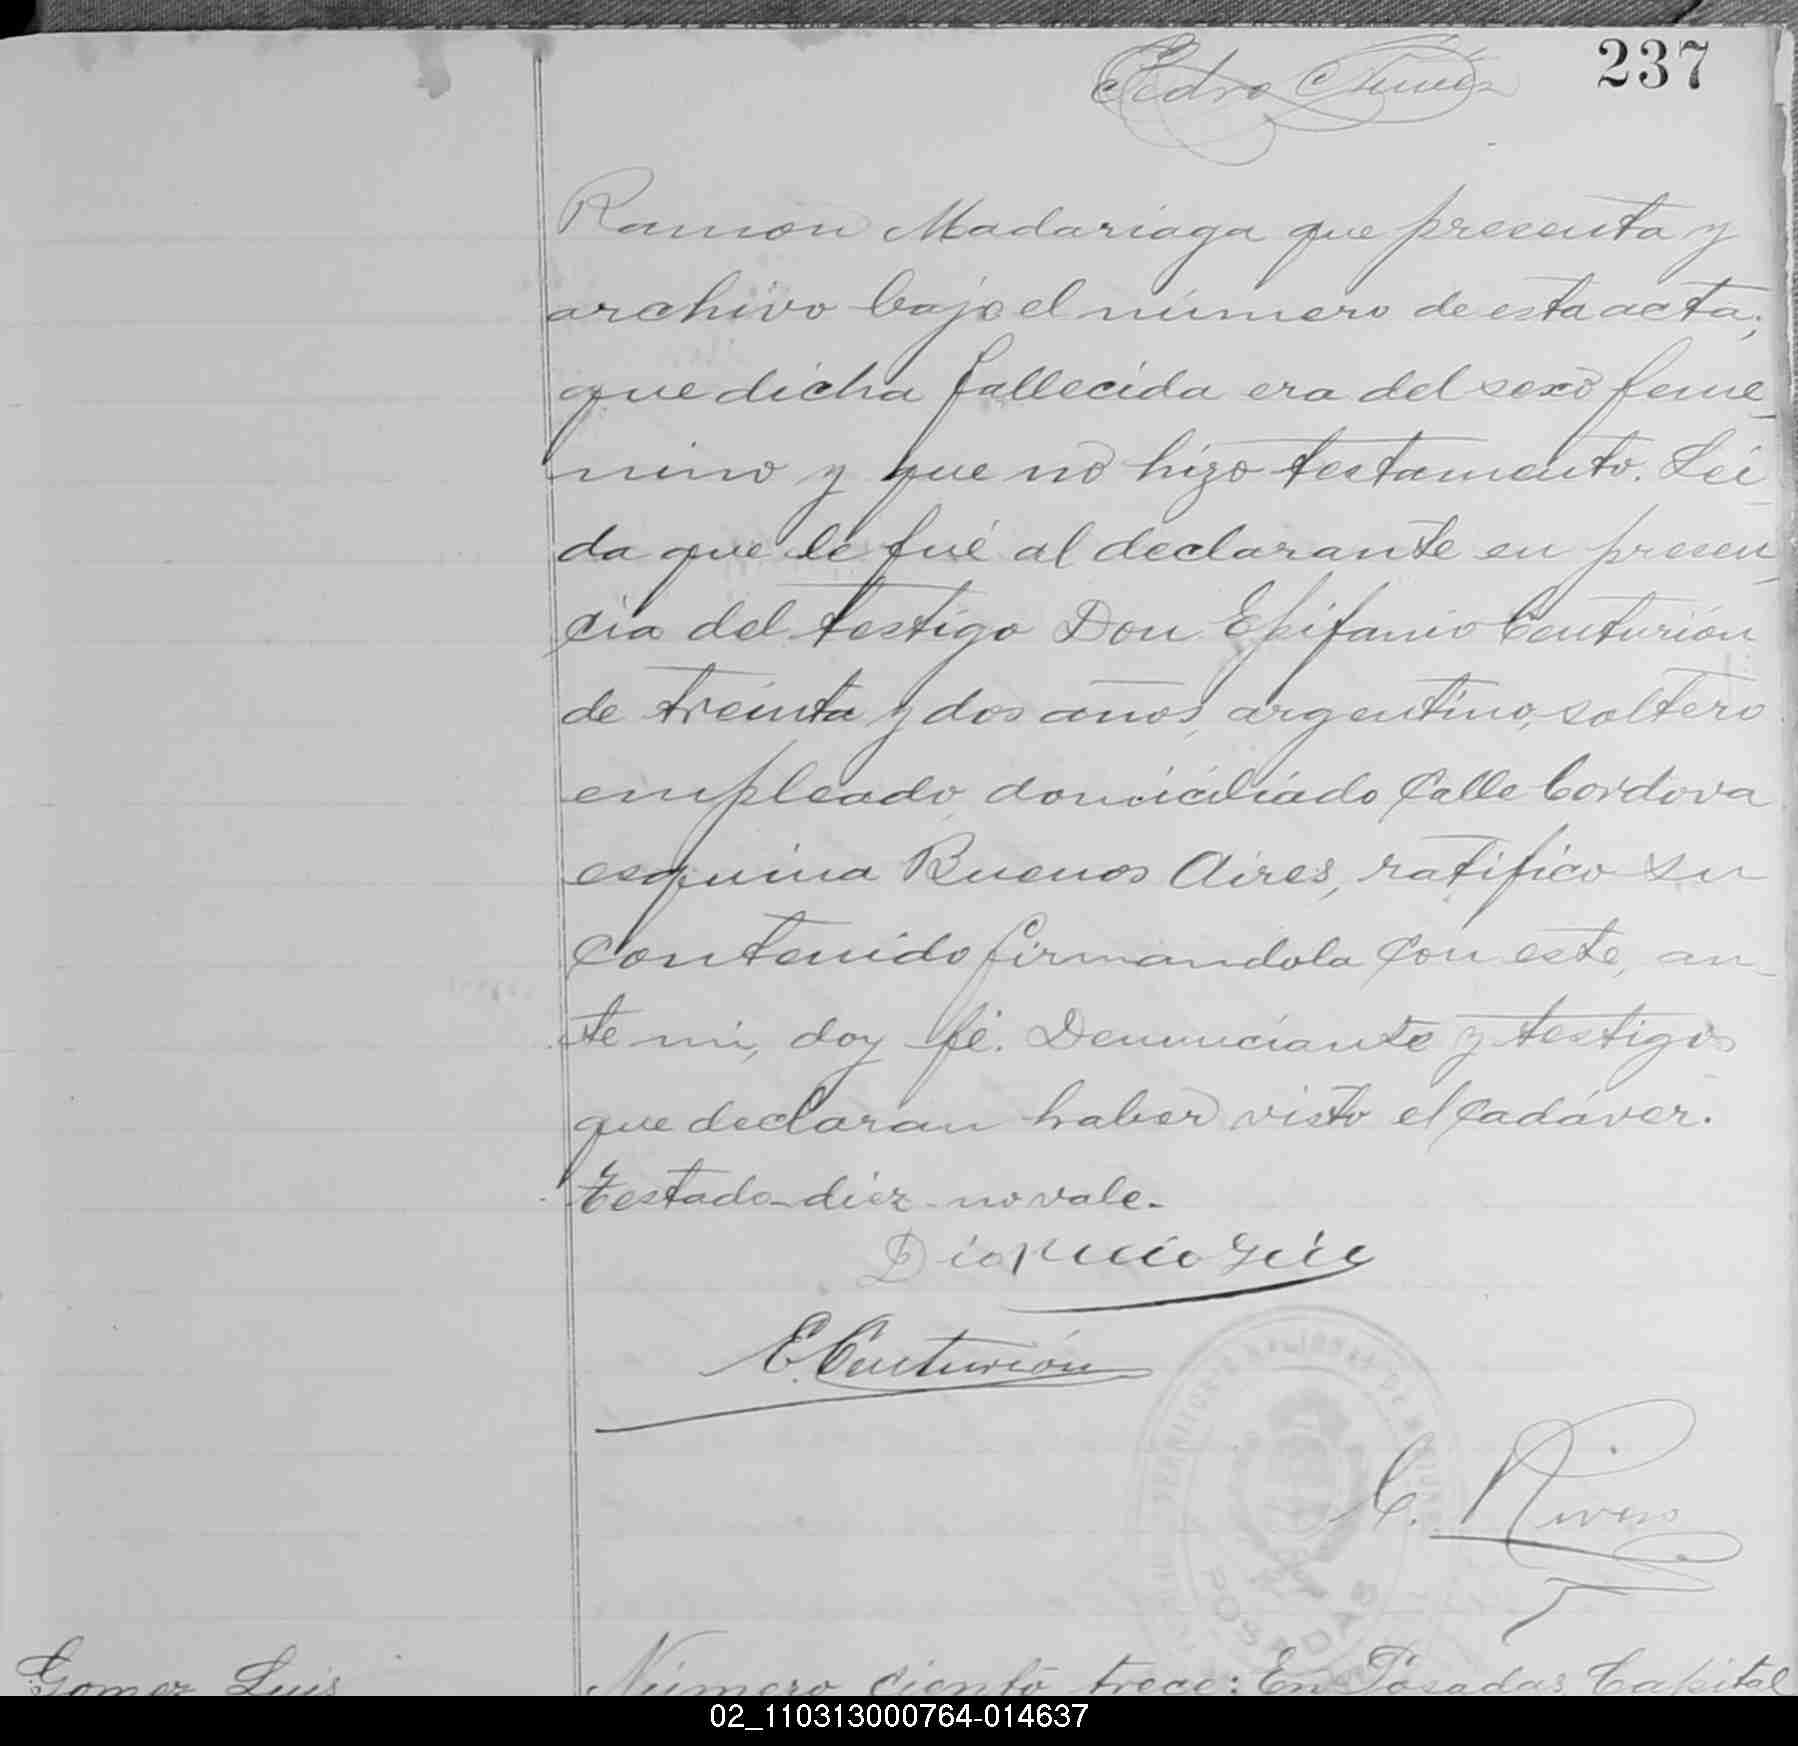 237
Pedro
Ramon Madariaga que presenta y
archivo bajo el número de esta acta;
que dicha fallecida era del sexo feme_
nino y que no hizo testamento. Lei_
da que le fué al declarante en presen_
cia del testigo Don Epifanio Centurión
de treinta y dos años, argentino, soltero
empleado, domiciliado Calle Cordova
esquina Buenos Aires, ratifico su
contenido firmandola con este, an_
te mi, doy fé. Denunciante y testigos
que declaran haber visto el cadáver.
Testado-diez-no vale-
E. Centurión
C. Rivero
POSADAS
Gomez Luis
Número ciento trece: En Posadas, Capital
02_110313000764-014637